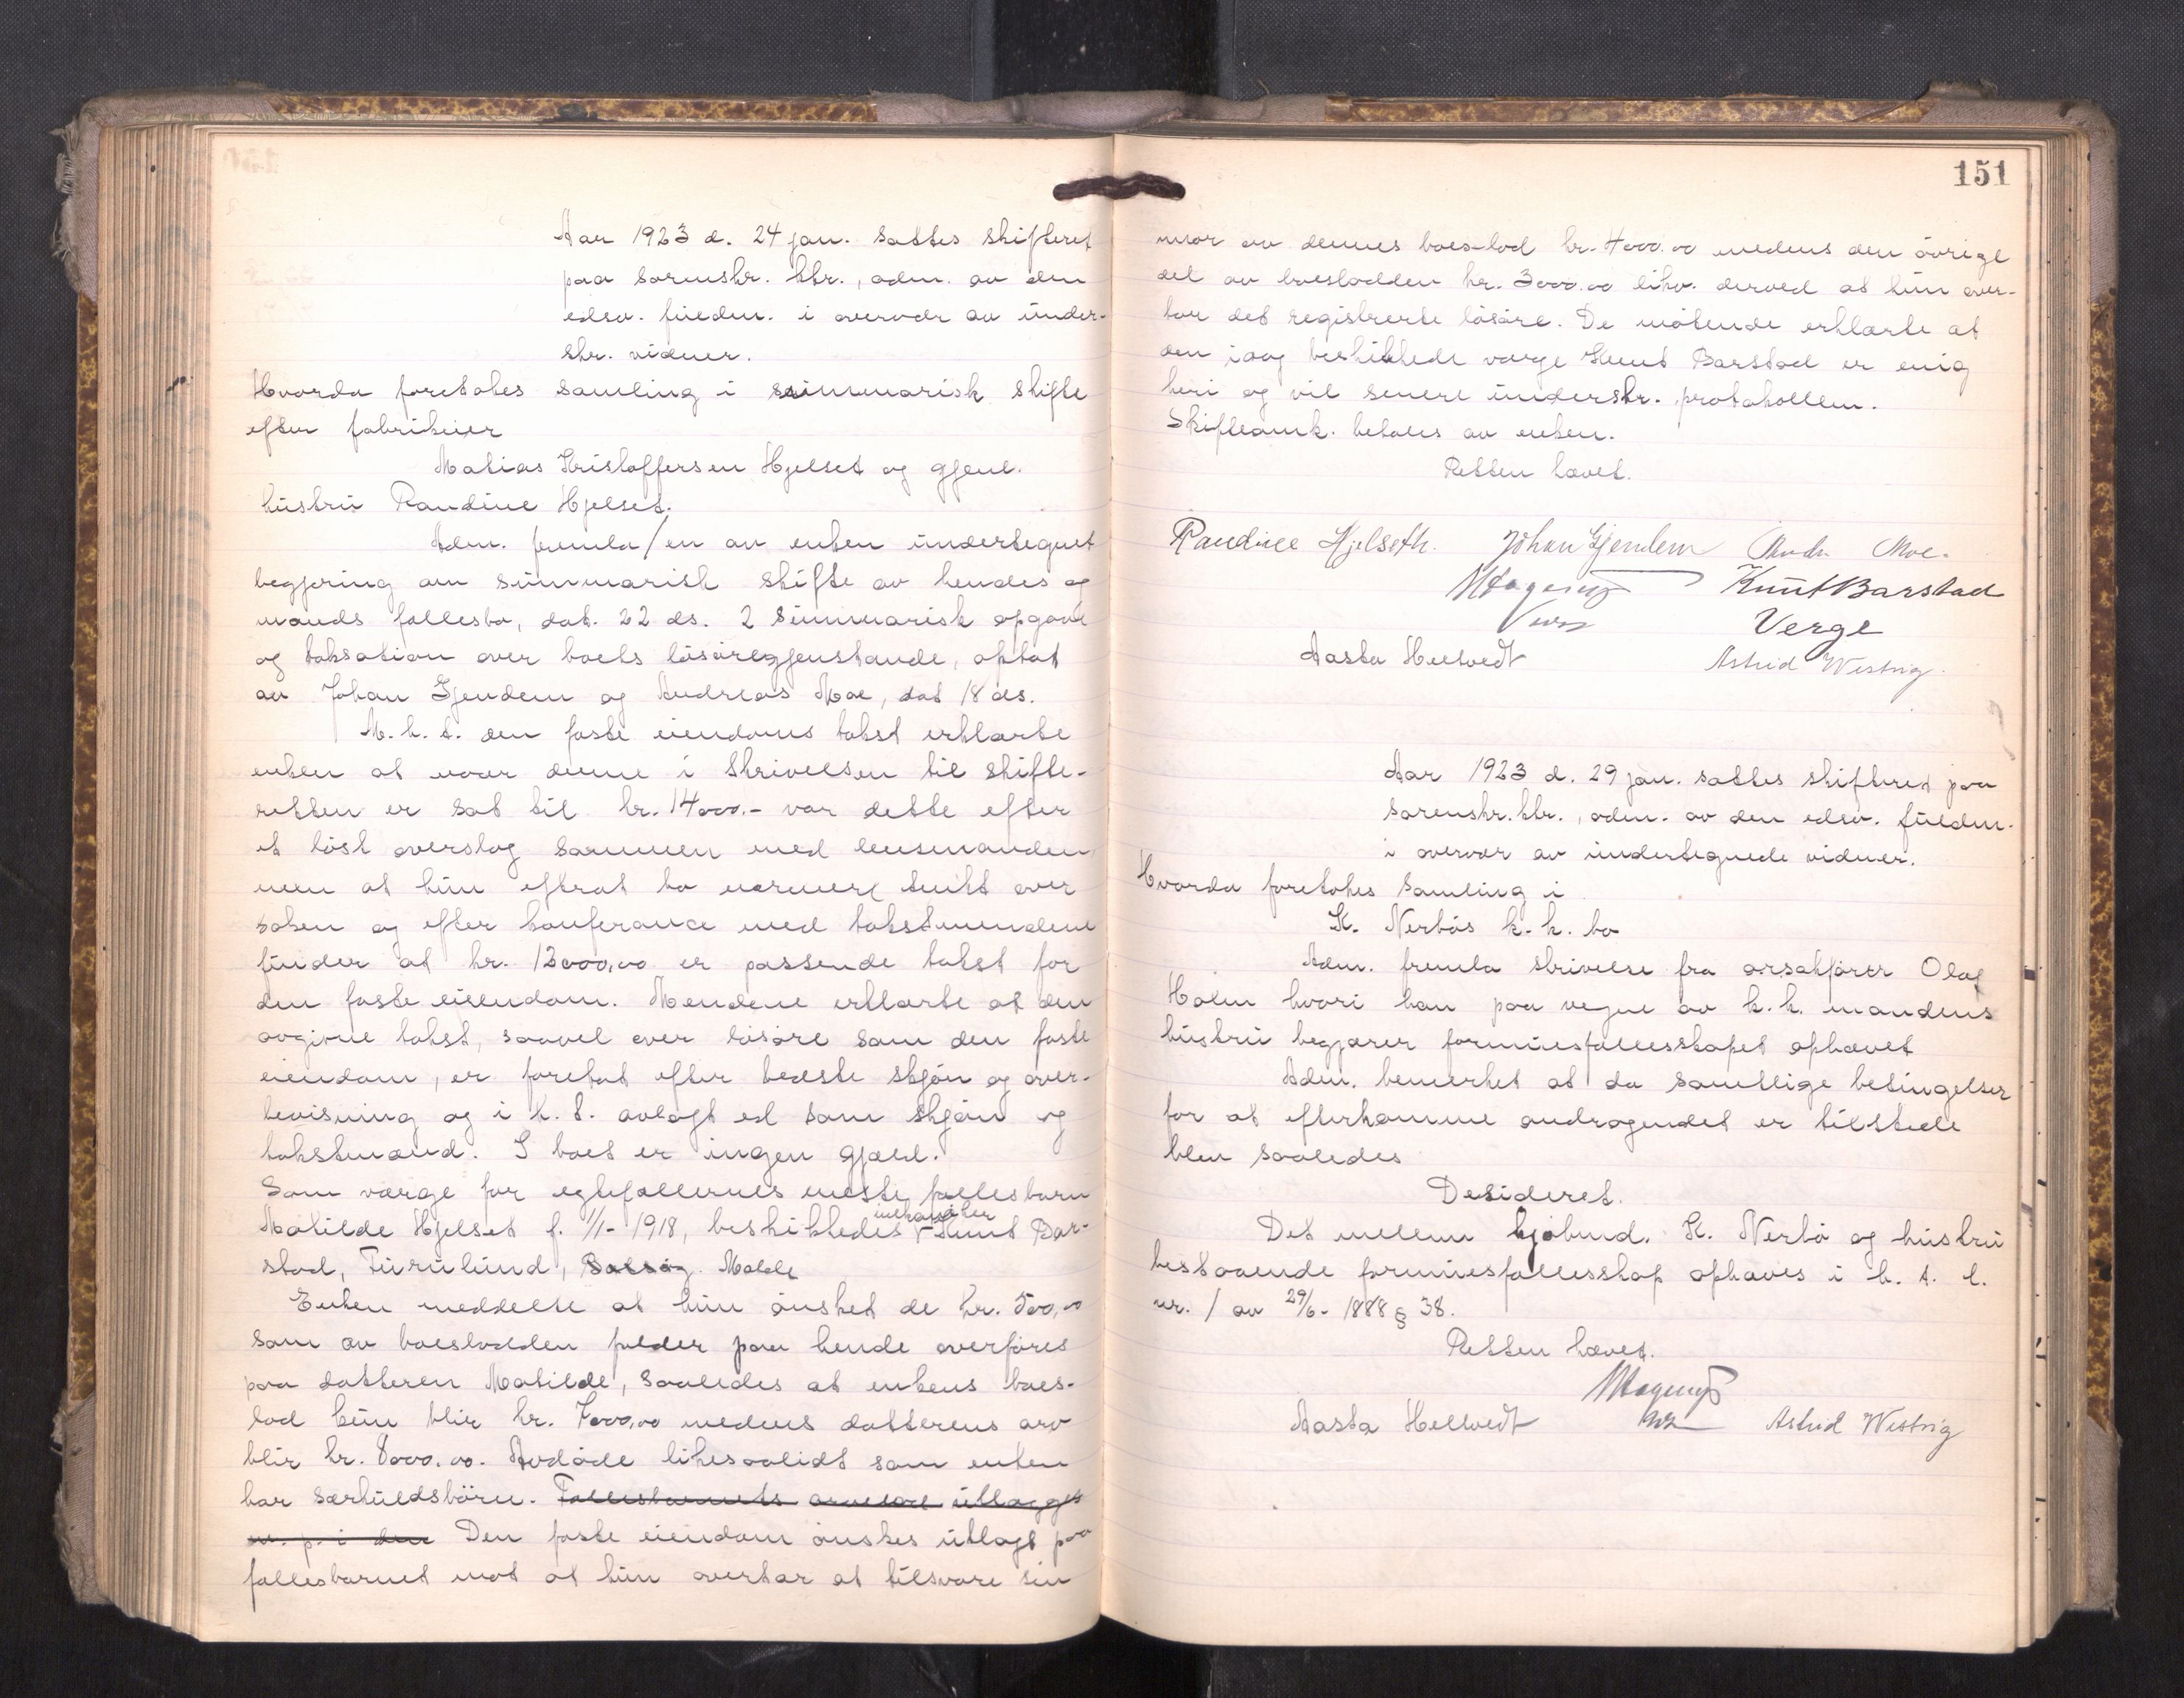 Aar 1923 d. 24 jan. sattes skifteret
paa sorenskr. ktr., adm. av den
edsv. fuldm. i overvær av under-
skr. vidner.
Hvorda foretokes samling i summarisk skifte
efter fabrikeier
Matias Kristoffersen Hjelset og gjenl.
hustru Randine Hjelset.
Adm. fremla 1 en av enken undertegnet
begjæring om summarisk skifte av hendes og
mands fællesbo, dat. 22 ds. 2 summarisk opgave
og taksation over boets løsøregjenstande, optat
av Johan Gjendem og Andreas Moe, dat 18 ds.
M. h. t. den faste eiendoms takst erklærte
enken at naar denne i skrivelsen til skifte-
retten er sat til kr. 14000.- var dette efter
et løst overslag sammen med lensmanden
men at hun efterat ha nærmere tenkt over
saken og efter konferance med takstmændene
finder at kr. 12000,00 er passende takst for
den faste eiendom. Mændene erklærte at den
avgivne takst, saavel over løsøre som den faste
eiendom, er foretat efter bedste skjøn og over-
bevisning og i h. t. avlagt ed som skjøn og
takstmænd. I boet er ingen gjæld.
Som værge for egtefællernes eneste fællesbarn
Matilde Hjelset f. 1/1- 1918, beskikkedes mekaniker Knut Bar-
stad, Furulund, Bolsøy. Molde
Enken meddelte at hun ønsket de kr. 500,00
som av boeslodden falder paa hende overføres
paa datteren Matilde, saaledes at enkens boes-
lod kun blir kr. 7000,00 medens datterens arv
blir kr. 8000.00. Avdøde likesaalidt som enken
har særkuldsbørn. Fællesbarnets arvelod utlægges
m. p. i den Den faste eiendom ønskes utlagt paa
fællesbarnet mot at hun overtar at tilsvare sin
151
mor av dennes boeslod kr. 4000.00 medens den øvrige
del av boeslodden kr. 3000.00 likv. derved at hun over-
tar det registrerte løsøre. De møtende erklærte at
den idag beskikkede værge Knut Barstad er enig
heri og vil senere underskr. protokollen.
Skifteomk. betales av enken.
Retten hævet.
Randine Hjelseth. Johan Gjendem Andr. Moe.
Knut Barstad
Verge
Aasta Hellvedt Astrid Westvig.
Aar 1923 d. 29 jan. sattes skifteret paa
sorenskr. ktr., adm. av den edsv. fuldm.
i overvær av undertegnede vidner.
Hvorda foretokes samling i
K. Nerbøs k.k. bo
Adm. fremla skrivelse fra o.r.sakfører Olaf
Holm hvori han paa vegne av k.k. mandens
hustru begjærer formuesfællesskapet ophævet
Adm. bemerket at da samtlige betingelser
for at efterkomme andragendet er tilstede
blev saaledes
Desideret.
Det mellem kjøbmd. K. Nerbø og hustru
bestaaende formuesfællesskap ophæves i h. t. l.
nr. 1 av 29/6- 1888 § 38.
Retten hævet.
Aasta Hellvedt Astrid Westvig